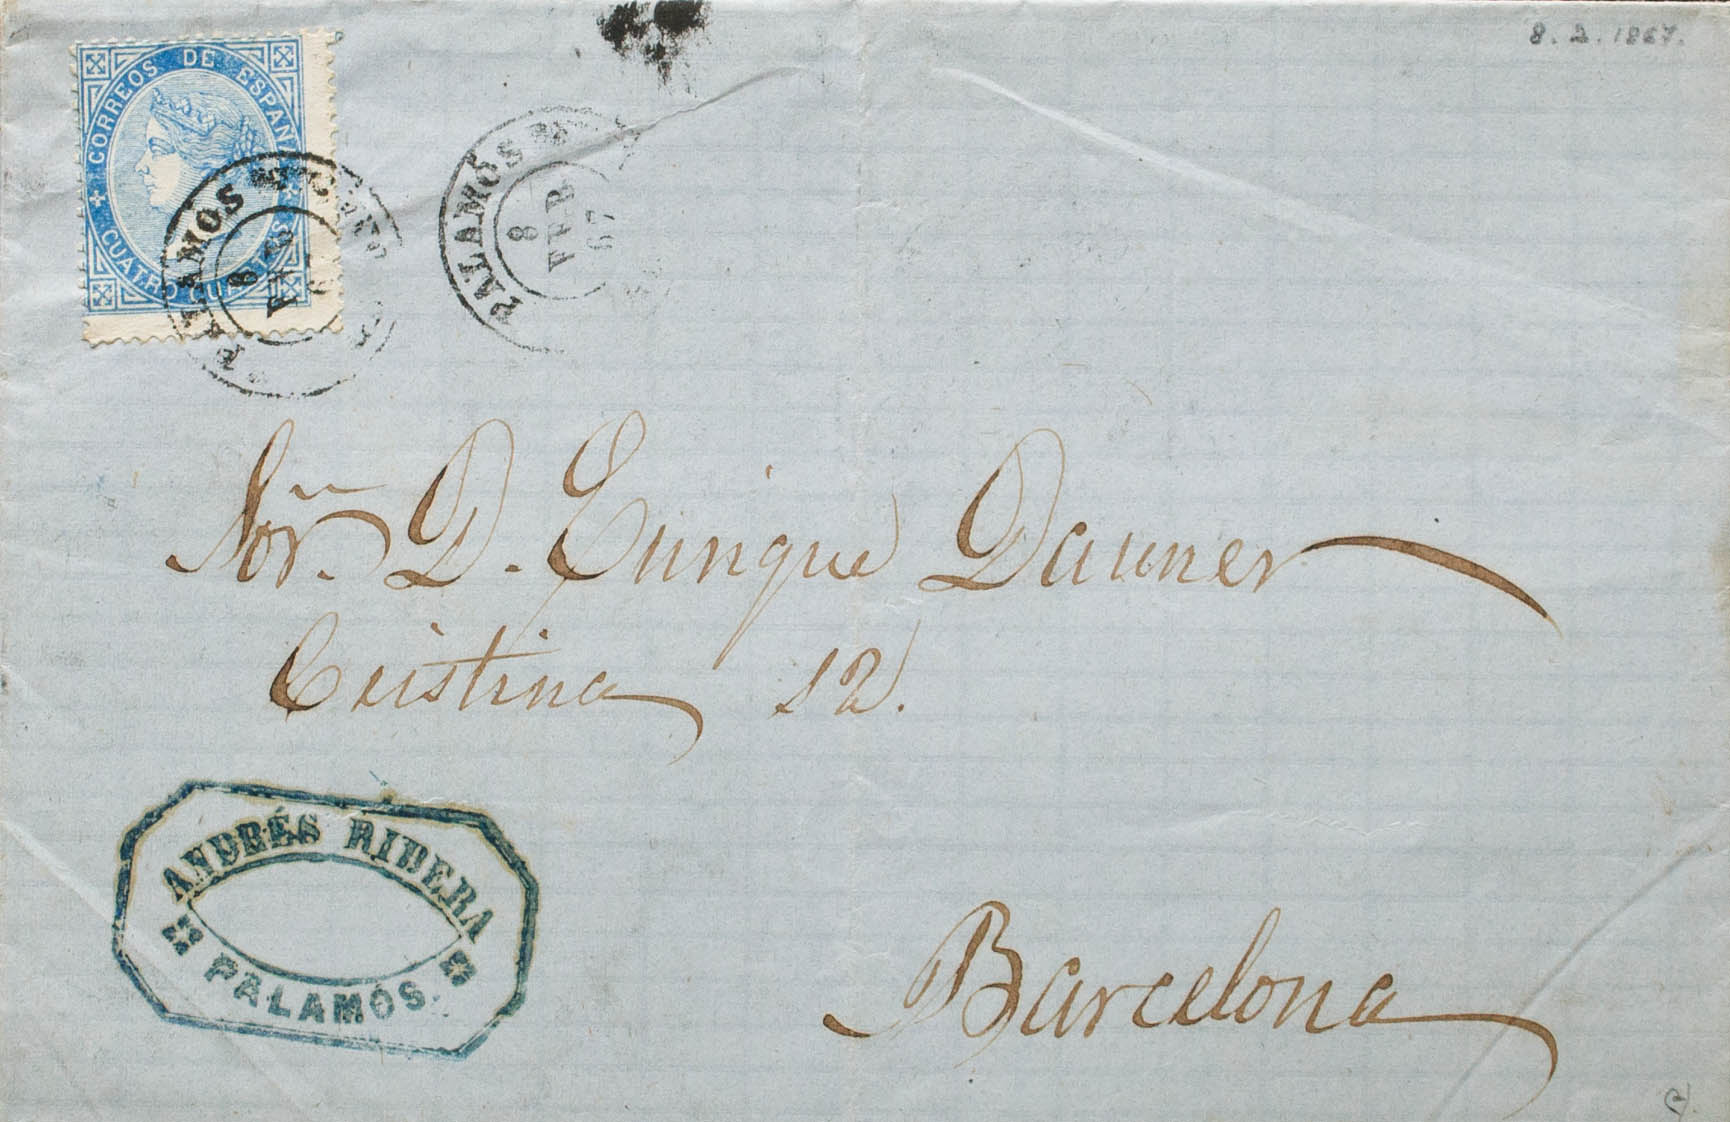 8. 2. 1867.
CORREOS DE ESPAÑA
CUATRO CUARTOS
PALAMÓS
8
FEB
67
PALAMÓS
8
FEB
67
Sor. D. Enrique Dauner
Cristina 12.
ANDRÉS RIBERA
PALAMÓS.
Barcelona